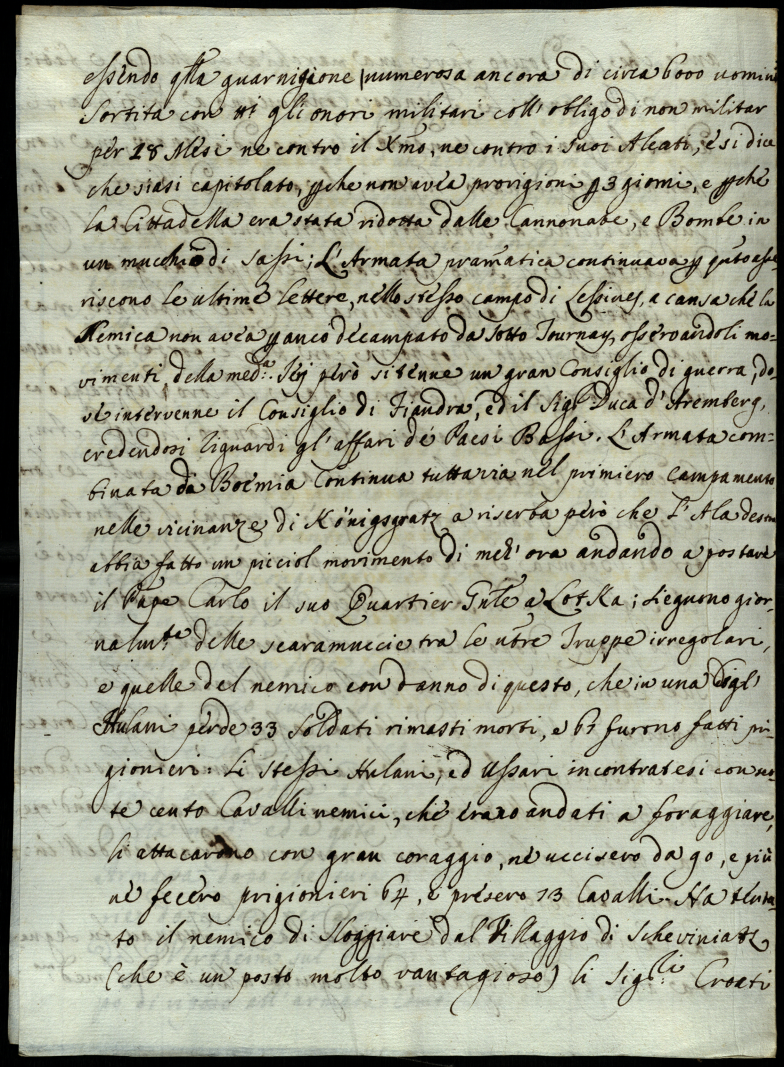 essendo qlla guarnigione numerosa ancora di circa 6000 uomini
sortita con tti gli onori militari coll' obligo di non militar
per 18 Mesi ne contro il Xmo, ne contro i suoi Aleati, e si dice
che siasi capitolato, pche non avea provigioni p 3 giorni, e pche
la Cittadella era stata ridotta dalle Cannonate, e Bombe in
un mucchio di sassi; L'Armata pramatica continuava p quto asse
riscono le ultime lettere, nello stesso campo di Lessines, a causa che la
Nemica non avea p anco decampato da sotto Tournay, osservandoli mo=
vimenti della meda. Jerj però si tenne un gran Consiglio di guerra, do
ve intervenne il Consiglio di Fiandra, ed il Sigr Duca d'Aremberg,
credendosi riguardi gl'affari de Paesi Bassi. L'Armata com=
binata da Boemia continua tuttavia nel primiero campamento
nelle vicinanze di Königsgratz a riserba però che l'Ala destra
abbia fatto un picciol movimento di mezz' ora andando a postare
il Pñpe Carlo il suo Quartier Gnle a Lotska; sieguono gior,
nalmte delle scaramuccie tra le nre Truppe irregolari,
e quelle del nemico con danno di questo, che in una degl'
Hulani perde 33 soldati rimasti morti, e 61 furono fatti pri
gionieri: Li stessi Hulani, ed Ussari incontratesi con set
te cento Cavalli nemici, che erano andati a foraggiare,
li attacarono con gran coraggio, ne uccisero da 90, e più
ne fecero prigionieri 64, e presero 73 Cavalli. Ha tenta=
to il nemico di sloggiare dal Villaggio di Scheviniatz
(che è un posto molto vantagioso) li Sigli Croati